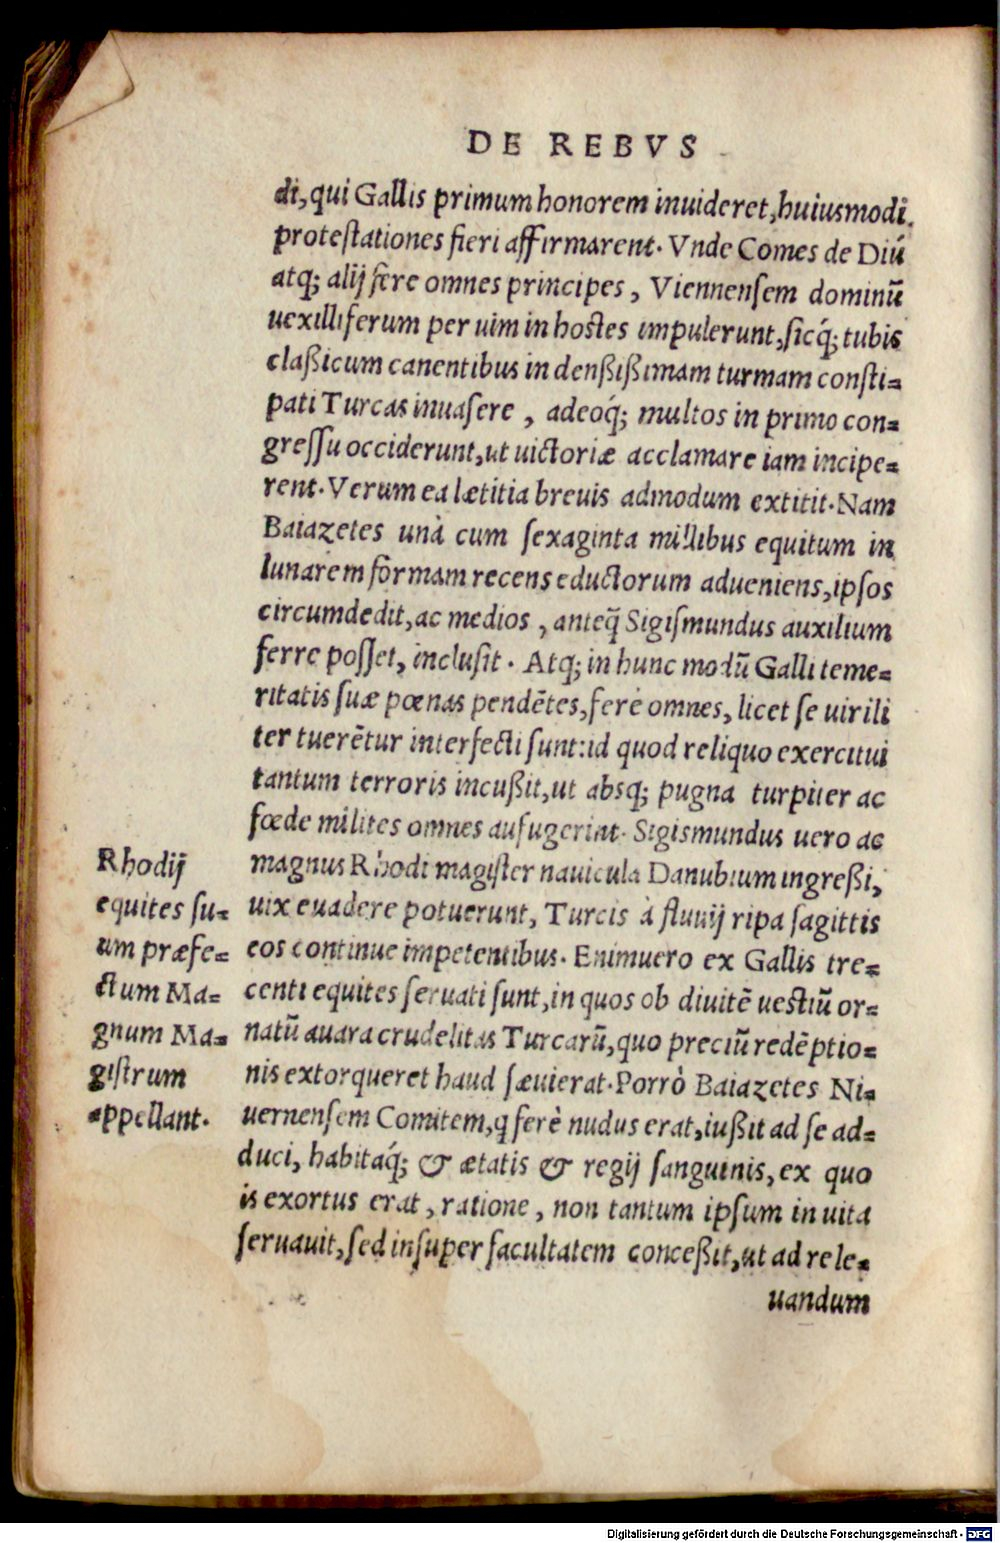 DE REBVS
di, qui Gallis primum honorem inuideret, huiusmodi
protestationes fieri affirmarent. Vnde Comes de Diú
atq; alij fere omnes principes, Viennensem dominū
uexilliferum per uim in hostes impulerunt, sicq́; tubis
claßicum canentibus in denßißimam turmam consti=
pati Turcas inuasere, adeoq́; multos in primo con=
gressu occiderunt, ut uictoriæ acclamare iam incipe=
rent. Verum ea lætitia breuis admodum extitit. Nam
Baiazetes unà cum sexaginta millibus equitum in
lunarem formam recens eductorum adueniens, ipsos
circumdedit, ac medios, anteq̃ Sigismundus auxilium
ferre posset, inclusit. Atq; in hunc modū Galli teme=
ritatis suæ pœnas pendētes, ferè omnes, licet se uirili
ter tuerētur interfecti sunt: id quod reliquo exercitui
tantum terroris incußit, ut absq; pugna turpiter ac
fœde milites omnes aufugerint. Sigismundus uero ac
magnus Rhodi magister nauicula Danubium ingreßi,
uix euadere potuerunt, Turcis à fluuij ripa sagittis
eos continue impetentibus. Enimuero ex Gallis tre=
centi equites seruati sunt, in quos ob diuitē uestiū or=
natū auara crudelitas Turcarū, quo preciū redēptio=
nis extorqueret haud sæuierat. Porrò Baiazetes Ni=
uernensem Comitem, q ferè nudus erat, iußit ad se ad=
duci, habitaq́; & ætatis & regij sanguinis, ex quo
is exortus erat, ratione, non tantum ipsum in uita
seruauit, sed insuper facultatem conceßit, ut ad rele=
uandum
Rhodij
equites su=
um præfe=
ctum Ma=
gnum Ma=
gistrum
appellant.
Digitalisierung gefördert durch die Deutsche Forschungsgemeinschaft - DFG